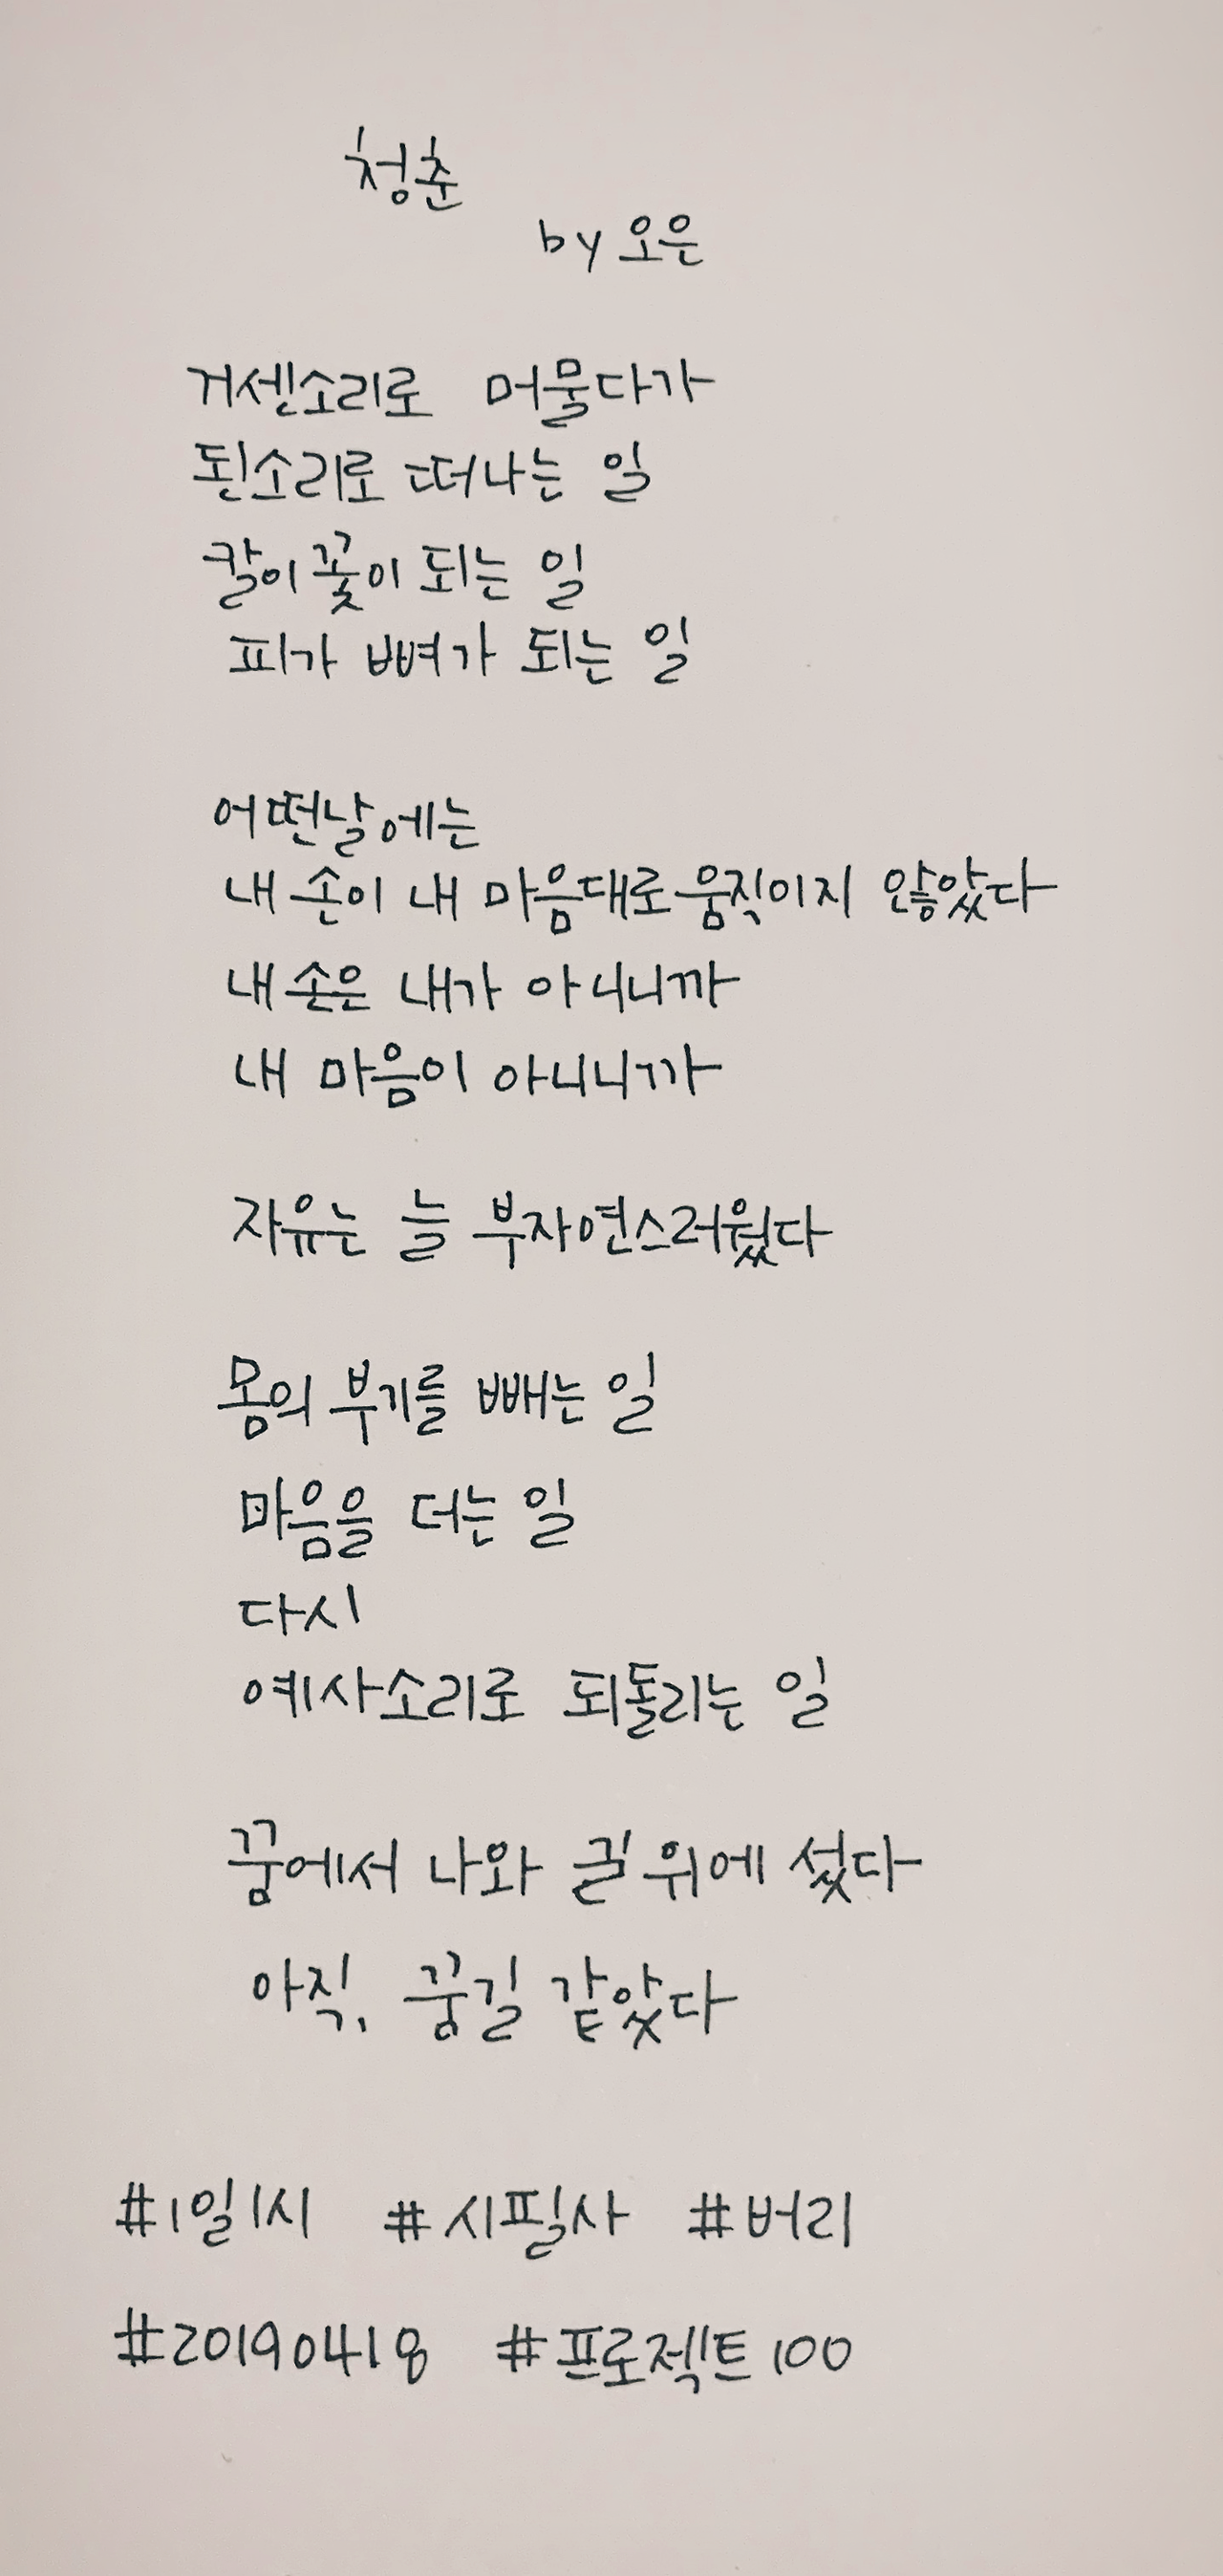 청춘
by 오은
거센소리로 머물다가
된소리로 떠나는 일
칼이 꽃이 되는 일
피가 뼈가 되는 일
어떤날에는
내 손이 내 마음대로 움직이지 않았다
내 손은 내가 아니니까
내 마음이 아니니까
자유는 늘 부자연스러웠다
몸의 부기를 빼는 일
마음을 더는 일
다시
예사소리로 되돌리는 일
꿈에서 나와 길 위에 섰다
아직, 꿈길 같았다
#1일1시 #시필사 #버리
#20190418 #프로젝트100